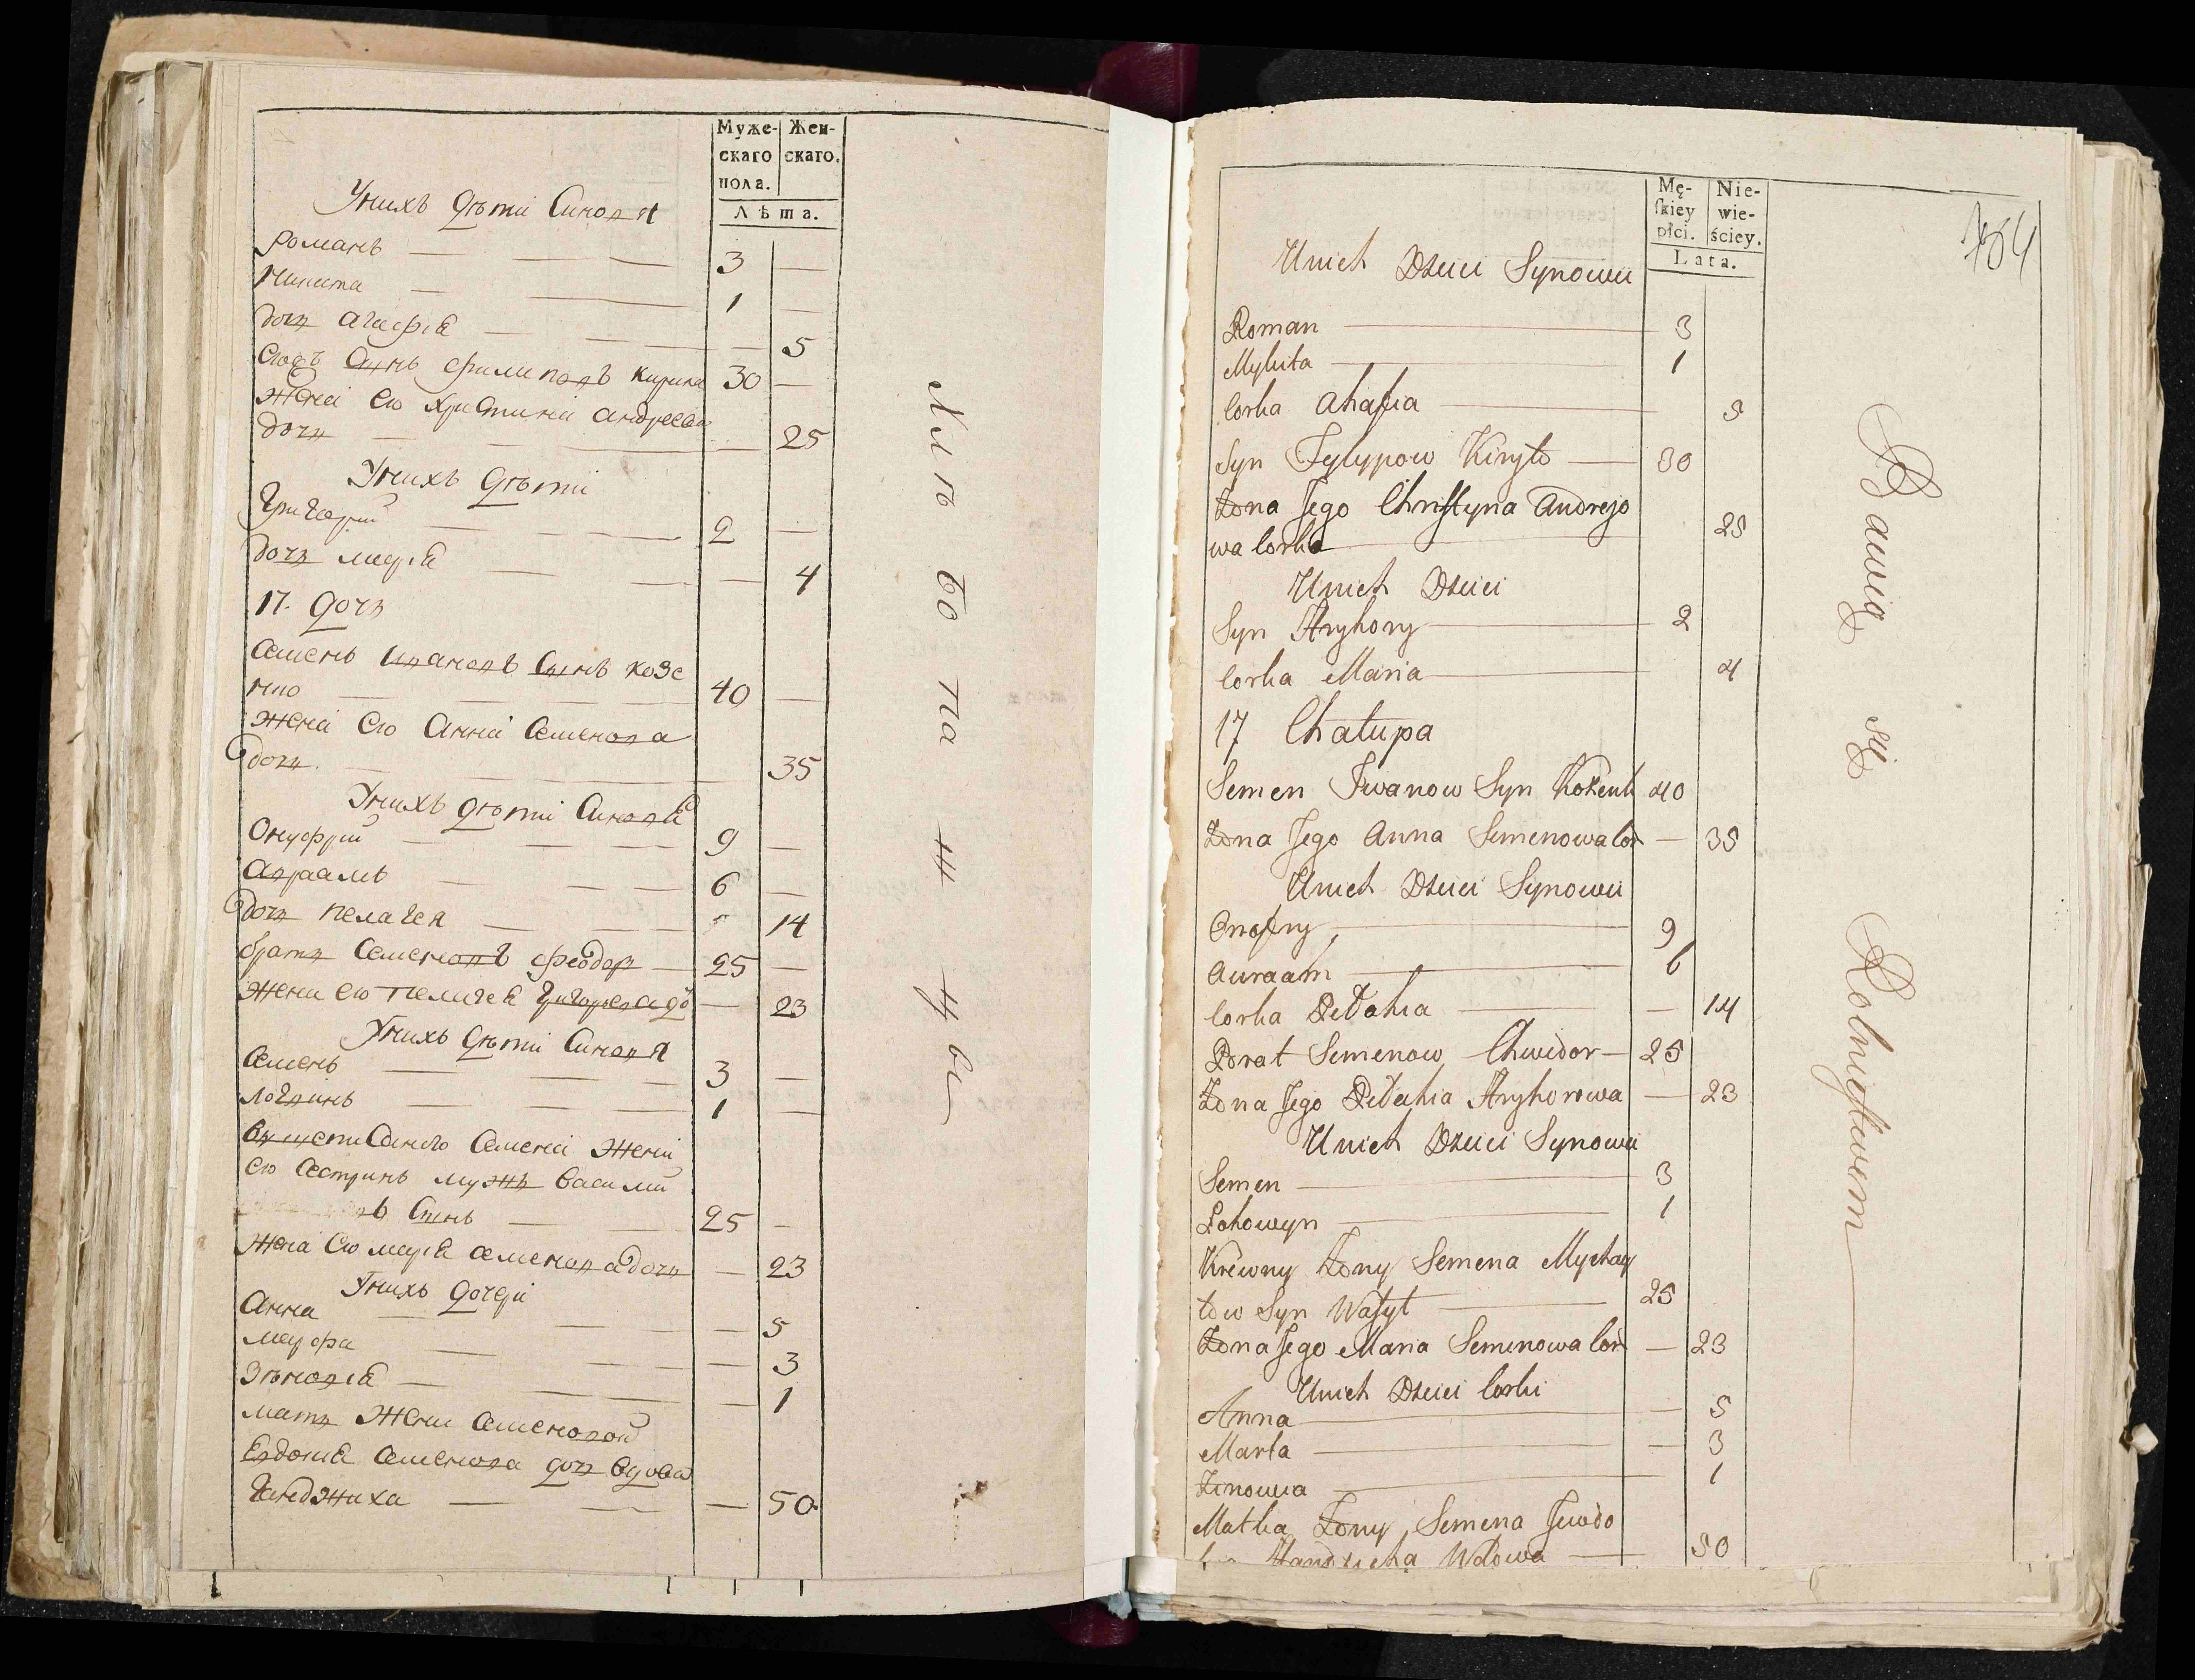 Муже-
скаго
пола.
Жен-
скаго.
Лѣта.
Унихъ дѣти Синовя
романъ — 3 —
Никита — 1 —
дочь агафія — — 5
Сынъ филиповъ кирило 30 —
жена его христина андреева
дочь — — 25
Унихъ дѣти
григорій — 2 —
дочь марія — — 4
17. дочь
Семенъ Ивановъ Сынъ козе
нко — 40 —
жена его Анна Семенова
дочь — 35
Унихъ дѣти Синовя
Онуфрій — 9 —
Авраамъ — 6 —
дочь пелагея — — 14
братъ Семеновъ феодор — 25 —
жена его пелагея григорева до — 23
Унихъ дѣти Синовя
Семенъ — 3 —
логвинъ — 1 —
вышеписаного Семена жени
его Сестринъ мужъ василій
Сынъ — 25 —
жена его марія Семенова дочь — 23
Унихъ дочери
Анна — — 5
марфа — — 3
Зѣновія — — 1
мать жени Семеновой
Евдокія Семенова дочь вдова
гандзиха — — 50
Хлѣбопажцы
Mę-
ſkiey
płci.
Nie-
wie-
ściey.
Lata.
164
Unich Dzieci Synowie
Roman — 3
Mykita — 1
Corka Ahafia — 5
Syn Fylypow Kiryło — 30
Żona Jego Chrystyna Andrejo
wa Corka — 25
Unich Dzieci
Syn Hryhory — 2
Corka Maria — 4
17 Chałupa
Semen Iwanow Syn Kozenk 40
Żona Jego Anna Semenowa Cor — 35
Unich Dzieci Synowie
Onofry — 9
Auraam — 6
Corka Pełahia — — 14
Brat Semenow Chwedor — 25
Żona Jego Pełahia Hryhorowa — 23
Unich Dzieci Synowie
Semen — 3
Lohowyn — 1
Krewny Żony Semena Mychay
łow Syn Wasyl — 25
Żona Jego Maria Semenowa Cor — 23
Unich Dzieci Corki
Anna — — 5
Marta — — 3
Zinowia — 1
Matka Żony Semena Jewdo
Handzicha Wdowa — 50
Bawią się Rolnictwem